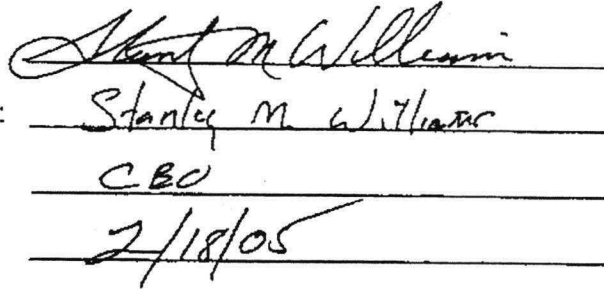 Stanley M Williams
: Stanley M. Williams
CBO
2/18/05